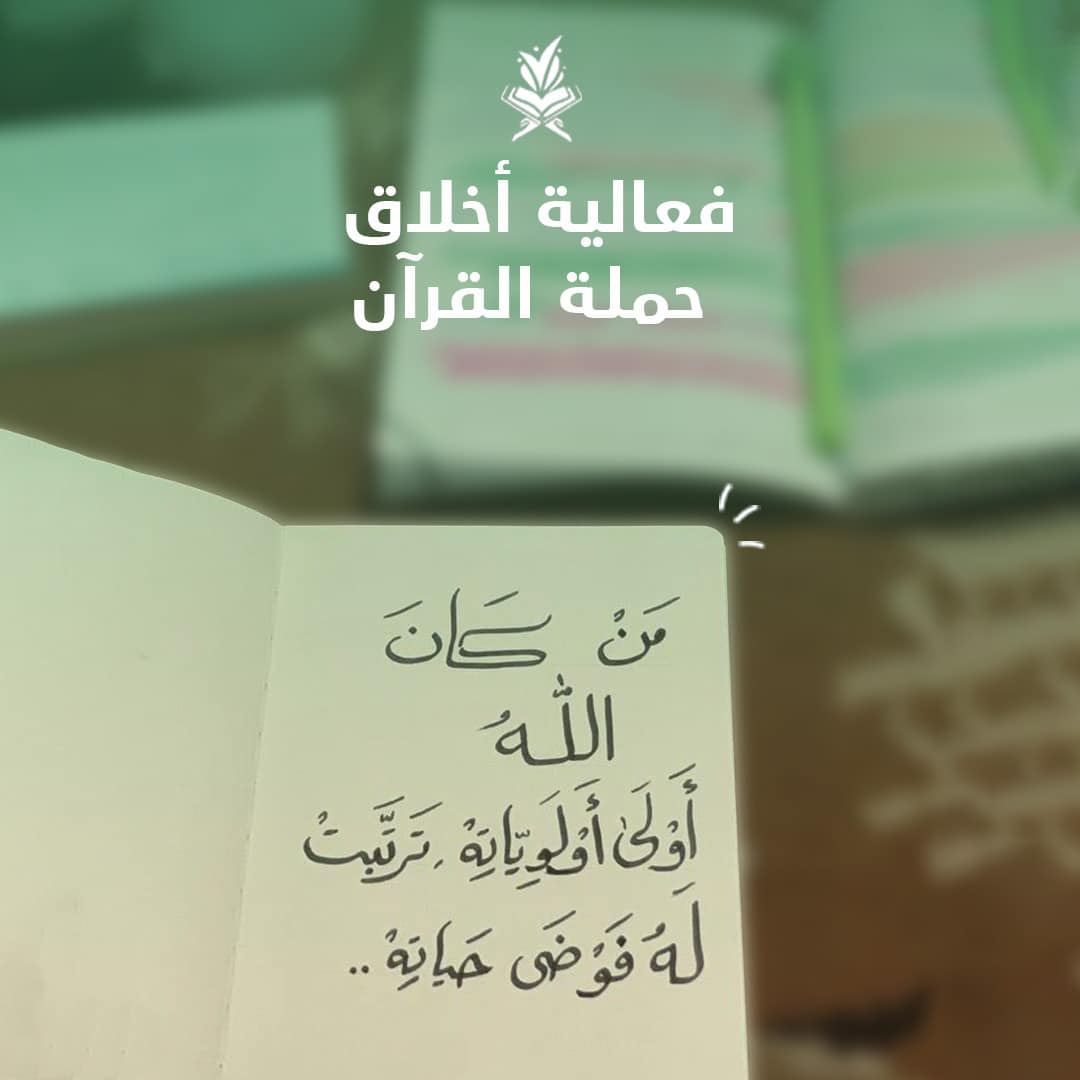 فعالية أخلاق
حملة القرآن
مَنْ كَانَ
اللّٰهُ
أَوْلَىٰ أَوْلَوِيَّاتِهْ، تَرَتَّبتْ
لَهُ فَوْضَى حَيَاتِهْ ..